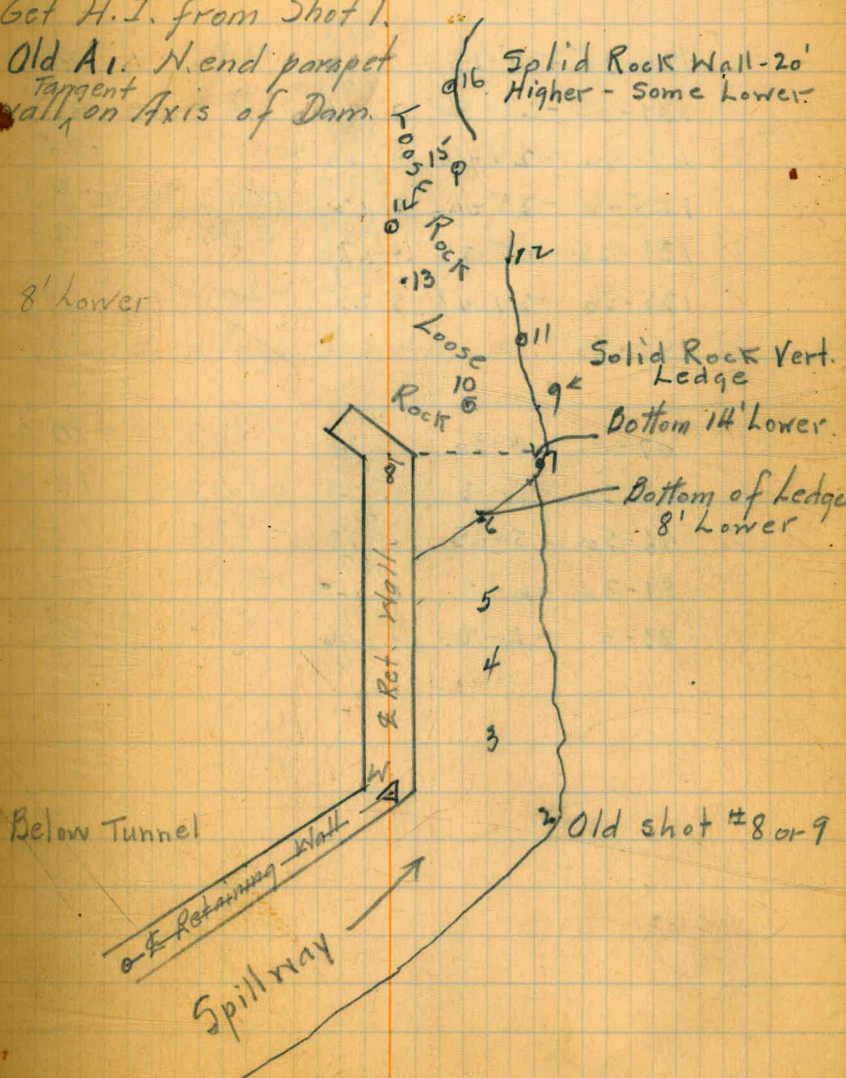 Get H.I. from Shot 1.
Old A1. N. end parapet
Tangent
wall ^ on Axis of Dam.
16
Solid Rock Wall-20'
Higher - Some Lower.
Loose
Rock
15
14
12
13
8' Lower
Loose
Rock
11
Solid Rock Vert.
Ledge
10
9
Bottom 14' Lower
8
7
Bottom of Ledge
8' Lower
6
5
℄ Ret. Wall
4
3
2
Old shot #8 or 9
Below Tunnel
℄ Retaining Wall
Spillway